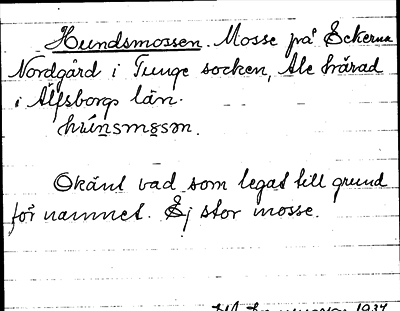 Hundsmossen. Mosse på Eckerna
Nordgård i Tunge socken, Ale härad
i Älfsborgs län.
húnsmɷsơn.
Okänt vad som legat till grund
för namnet. Ej stor mosse.
1934